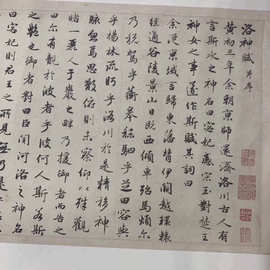 洛神賦 并序
黃初三年余朝京師還濟洛川古人有
言斯水之神名曰宓妃感宋玉對楚王
神女之事遂作斯賦其詞曰
余從京域言歸東藩背伊闕越轘轅
經通谷陵景山日既西傾車殆馬煩爾
迺稅駕乎蘅皋秣駟乎芝田容與
乎楊林流眄乎洛川於是精移神
駭忽焉思散俯則未察仰以殊觀
睹一麗人于巖之畔乃援御者而告之
曰爾有覿於彼者乎彼何人斯若斯
之豔也御者對曰臣聞河洛之神名
曰宓妃則君王之所見